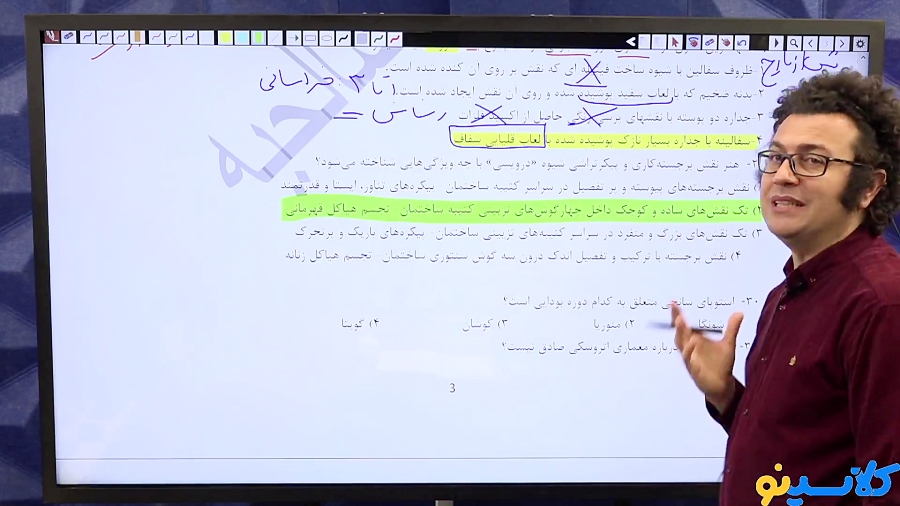 ظروف سفالین با شیوه ساخت ای که نقش بر روی آن کنده شده است.
۲- بدنه ضخیم که با لعاب سفید پوشیده شده و روی آن نقش ایجاد شده است. ۱ تا ۳: خراسانی
۳- جداره دو پوسته با نقشهای حاصل از فلزات
۴- سفالینه با جداره بسیار نازک پوشیده شده با لعاب قلیایی شفاف
هنر نقش برجسته‌کاری و پیکرتراشی شیوه «دروپسی» با چه ویژگی‌هایی شناخته می‌شود؟
نقش برجسته‌های پیوسته و پر تفصیل در سراسر کتیبه ساختمان - پیکره‌های تناور، ایستا و قدرتمند
۲) تک نقش‌های ساده و کوچک داخل چهارگوش‌های تزیینی کتیبه ساختمان - تجسم هیاکل قهرمانی
۳) تک نقش‌های بزرگ و منفرد در سراسر کتیبه‌های تزیینی ساختمان - پیکره‌های باریک و پرتحرک
۴) نقش برجسته با ترکیب و تفصیل اندک درون سه گوش سنتوری ساختمان - تجسم هیاکل زنانه
۳۰- استوپای سانچی متعلق به کدام دوره بودایی است؟
شونگا ۲) موریا ۳) کوشان ۴) گوپتا
درباره معماری اتروسکی صادق نیست؟
3
کلاسینو